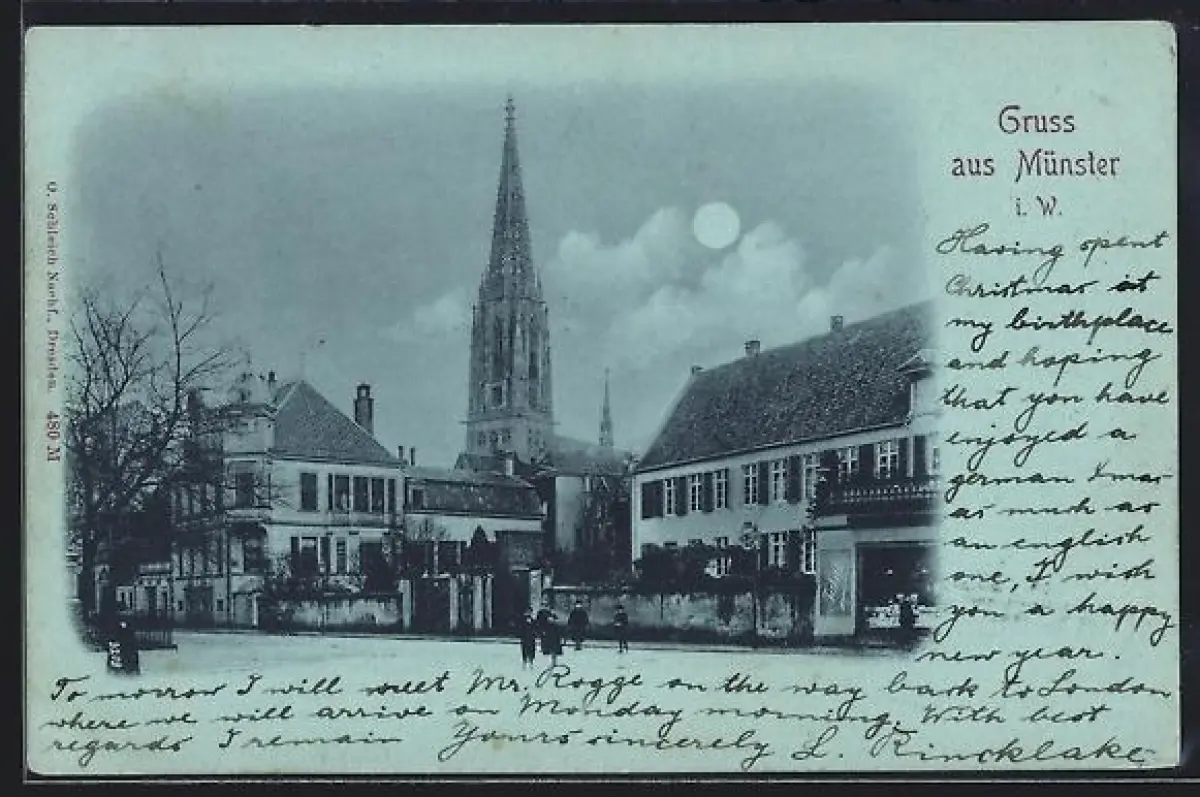 Gruss
aus Münster
i. W.
Having spent
Christmas at
my birthplace
and hoping
that you have
enjoyed a
german Xmas
as much as
an english
one, I wish
you a happy
new year.
To morrow I will meet Mr. Rogge on the way back to London
where we will arrive on Monday morning. With best
regards I remain Yours sincerely L. Rincklake
O. Schleich Nachf., Dresden. 480 M